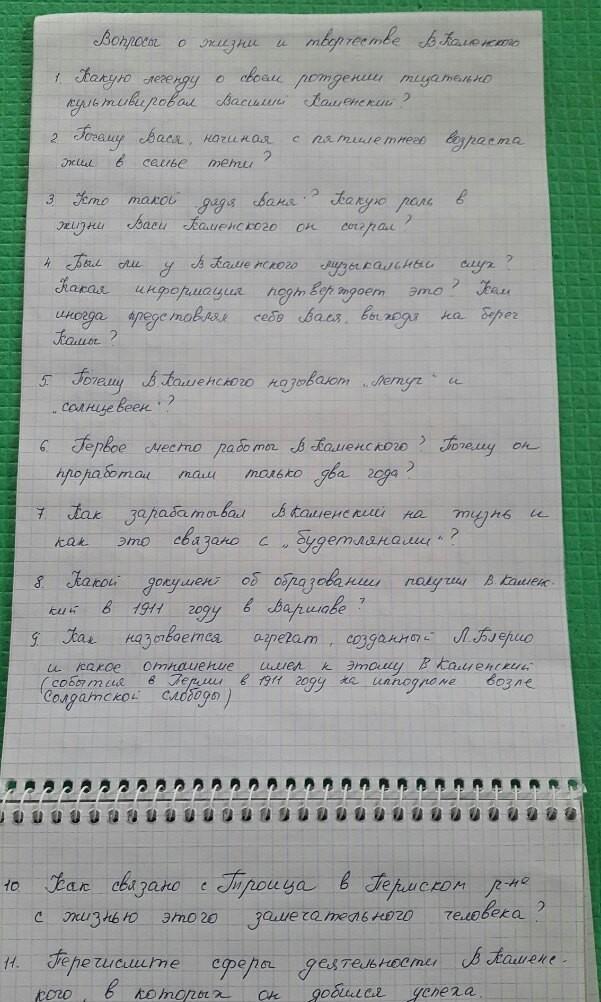 Вопросы о жизни и творчестве В Каменского
1. Какую легенду о своем рождении тщательно
культивировал Василий Каменский?
2. Почему Вася, начиная с пятилетнего возраста
жил в семье тети?
3. Кто такой дядя Ваня? Какую роль в
жизни Васи Каменского он сыграл?
4. Был ли у В Каменского музыкальный слух?
Какая информация подтверждает это? Кем
иногда представлял себя Вася, выходя на берег
Камы?
5. Почему В Каменского называют „летуч" и
„солнцевеен"?
6. Первое место работы В Каменского? Почему он
проработал там только два года?
7. Как зарабатывал В Каменский на жизнь и
как это связано с „будетлянами"?
8. Какой документ об образовании получил В. Камен-
кий в 1911 году в Варшаве?
9. Как называется агрегат, созданный Л. Блерио
и какое отношение имел к этому В Каменский
(события в Перми в 1911 году на ипподроме возле
Солдатской слободы)
10 Как связано с Троица в Пермском р-не
с жизнью этого замечательного человека?
11. Перечислите сферы деятельности В Каменс-
кого, в которых он добился успеха.